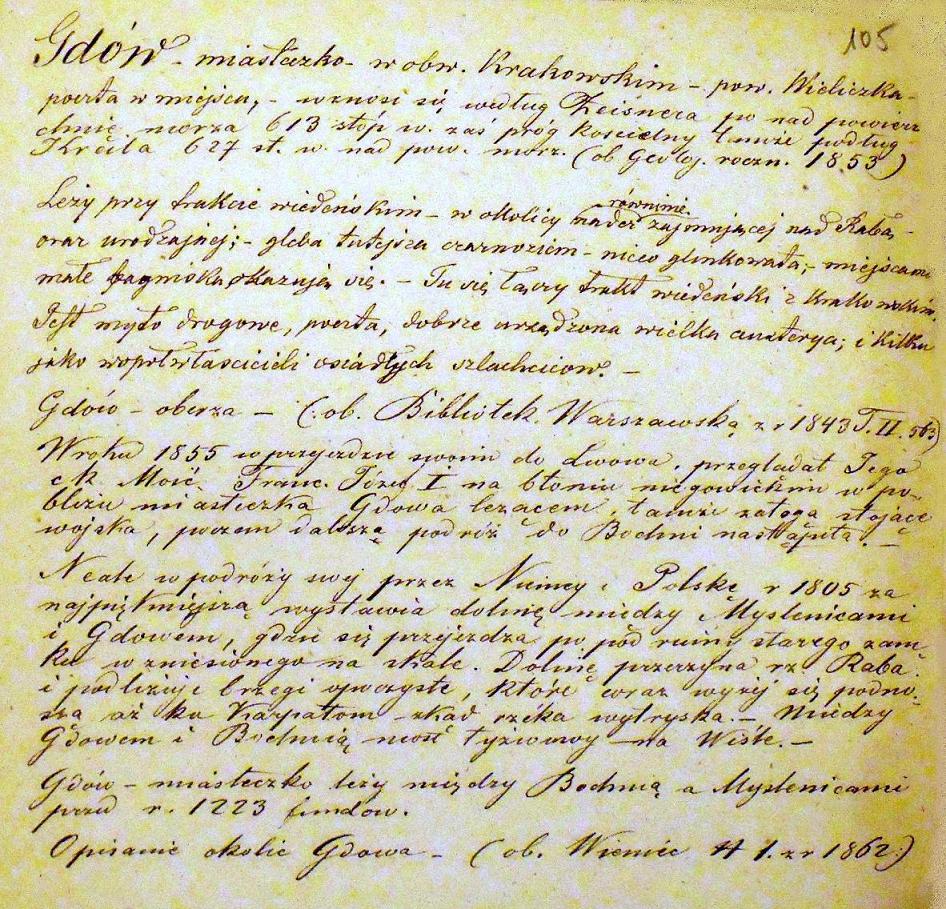 105
Gdów - miasteczko - w obw. Krakowskim - pow. Wieliczka -
poczta w miejscu, - wznosi się według Zeisnera po nad powierz
chnię morza 613 stóp w. zaś próg kościelny tamże podług
Kreila 627 st. w. nad pow. morz. (ob Geolog. roczn. 1853)
Leży przy trakcie wiedeńskim - w okolicy nader równinę zajmującej nad Rabą, -
oraz urodzajnej; - gleba tutejsza czarnoziem - nieco glinkowata; - miejscami
małe bagniska okazują się. - Tu się łączy trakt wiedeński z krakowskim.
Jest myto drogowe, poczta, dobrze urządzona wielka austerya; i kilku
jako współwłaścicieli osiadłych szlachciców. -
Gdów - oberża - (: ob. Bibliotek. Warszawską z r 1843 T. II. 563)
W roku 1855 w przejeździe swoim do Lwowa, przeglądał Jego
c k. Mość Franc. Józef I na błoniu niegowickim w po-
bliżu miasteczka Gdowa leżącem, tamże załogą stojące
wojska, poczem dalszą podróż do Bochni nastąpiła. -
Neale w podróży swej przez Niemcy i Polskę r 1805 za
najpiękniejszą wystawia dolinę między Myslenicami
i Gdowem, gdzie się przejezdza po pod ruiny starego zam-
ku wzniesionego na skale. Dolinę przerzyna rz. Raba
i podlizuje brzegi spadzyste, które coraz wyżej się podno-
szą aż ku Karpatom zkąd rzéka wytryska. - Między
Gdowem i Bochnią most łyżwowy na Wiśle. -
Gdów - miasteczko leży między Bochnią a Myslenicami
przed r. 1223 fundow.
Opisanie okolic Gdowa - (ob. Wieniec 1. z r 1862:)